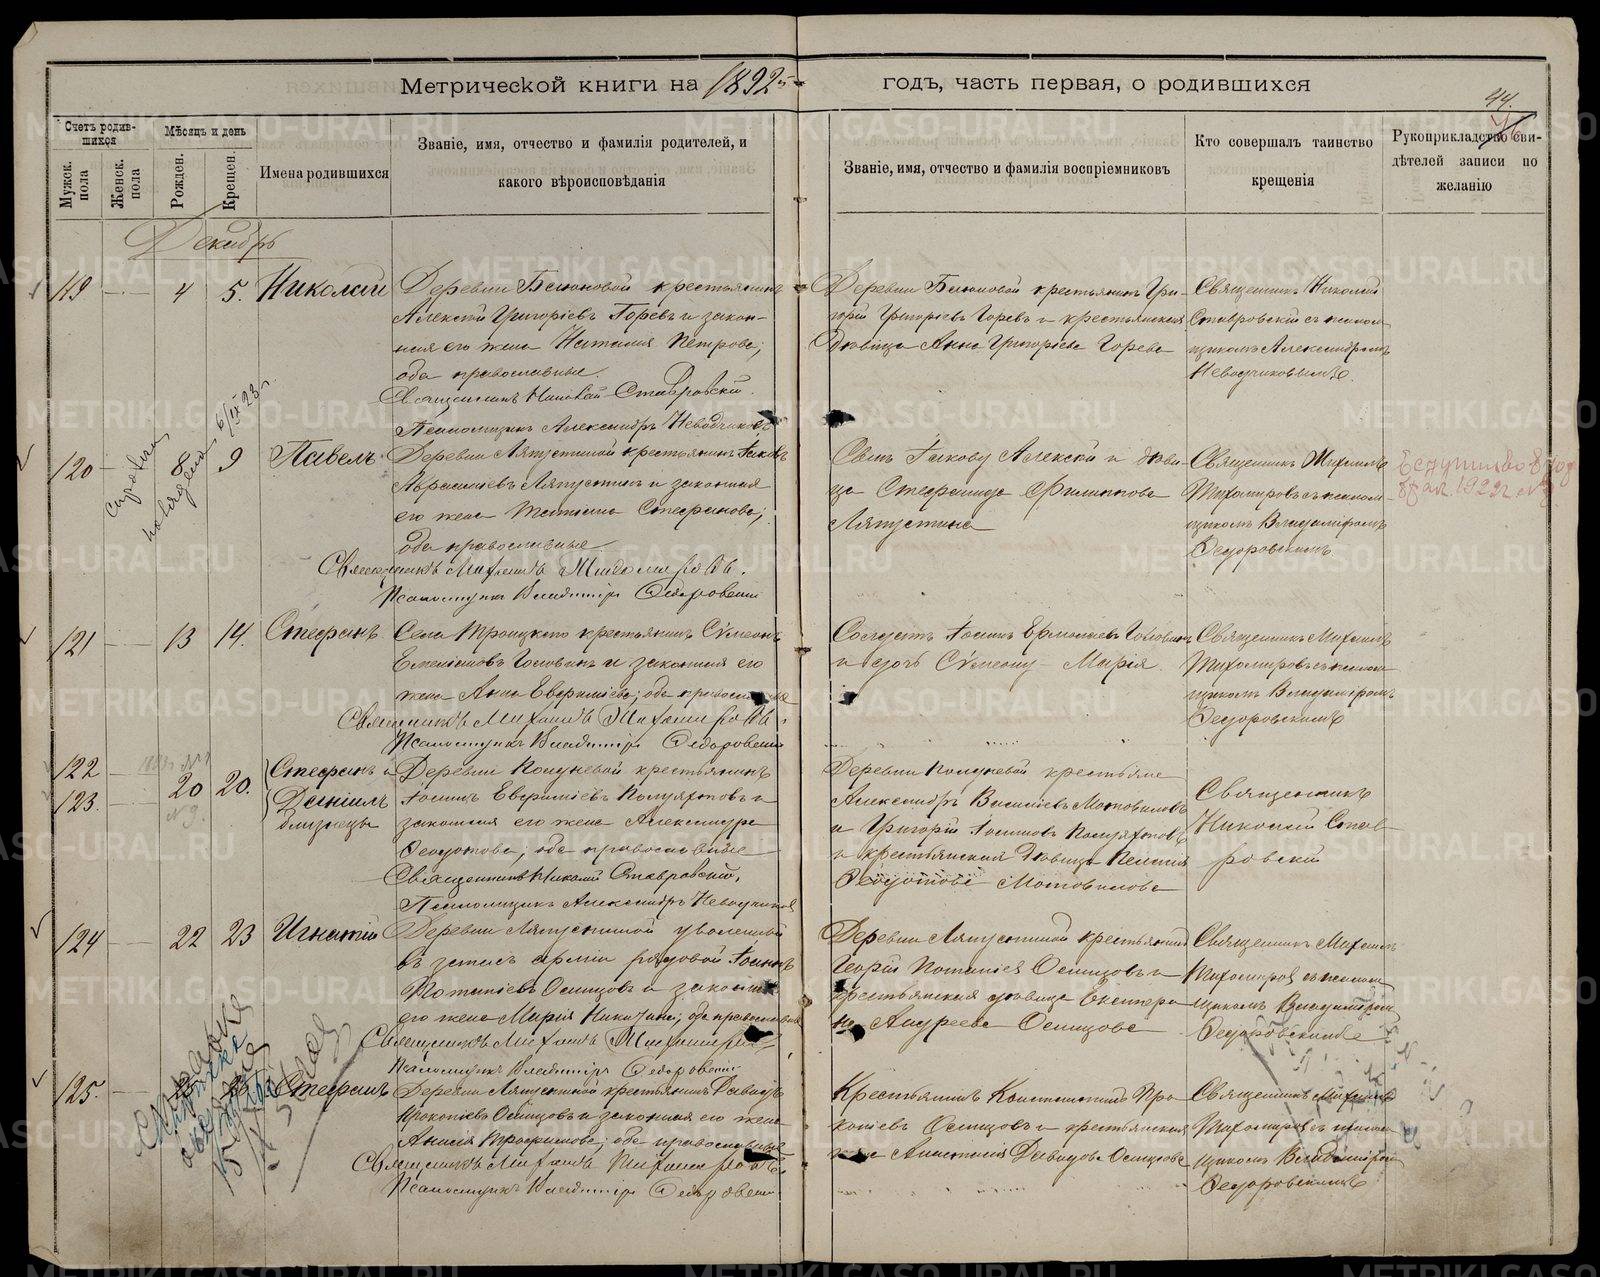 Метрической книги на 1892 й годъ, часть первая, о родившихся
44.
Счетъ родившихся
Мужск. пола
Женск. пола
Мѣсяцъ и день
Рожден.
Крещен.
Имена родившихся
Званіе, имя, отчество и фамилія родителей, и
какого вѣроисповѣданія
Званіе, имя, отчество и фамилія воспріемниковъ
Кто совершалъ таинство
крещенія
Рукоприкладство сви-
дѣтелей записи по
желанію
Декабрь
119 4 5. Николай
Деревни крестьянинъ
Алексѣй Григоріевъ Горевъ и закон-
ная его жена Наталія Петрова;
оба православные.
Священникъ Николай Ставровскій.
Псаломщикъ Александръ Неводчиковъ
Деревни крестьянинъ Гри-
горій Григоріевъ Горевъ и крестьянская
дѣвица Анна Григоріева Горева
Священникъ Николай
Ставровскій съ псалом-
щикомъ Александромъ
Неводчиковымъ.
120 8 9 Павелъ
Справка
6/IX 23 г.
Деревни Ляпустиной крестьянинъ Іаковъ
Авраамовъ Ляпустинъ и законная
его жена Татіана Стефанова;
оба православные
Священникъ Михаилъ Тихомировъ.
Псаломщикъ Владиміръ Федоровскій
Іакову Алексѣй и дѣви-
ца Стефанида Филиппова
Ляпустина
Священникъ Михаилъ
Тихомировъ съ псалом-
щикомъ Владиміромъ
Федоровскимъ
121 13 14. Стефанъ
Села Троицкаго крестьянинъ Сѵмеонъ
Головинъ и законная его
жена Анна Евфиміева; оба православные
Священникъ Михаилъ Тихомировъ.
Псаломщикъ Владиміръ Федоровскій
Солдатъ Іоаннъ Ермолаевъ Головинъ
и дочь Сѵмеону Марія.
Священникъ Михаилъ
Тихомировъ съ псалом-
щикомъ Владиміромъ
Федоровскимъ
122
123. 20 20. Стефанъ и
Даніилъ
близнецы
Деревни крестьянинъ
Іоаннъ Евфиміевъ Полуяхтовъ и
законная его жена Александра
Ѳеодотова; оба православные
Священникъ Николай Ставровскій.
Псаломщикъ Александръ Неводчиковъ
Деревни крестьяне
Александръ Василіевъ Мотовиловъ
и Григорій Іоанновъ Полуяхтовъ
и крестьянская дѣвица Пелагія
Ѳеодотова Мотовилова
Священникъ
Николай Став-
ровскій
124 22 23 Игнатій
Деревни Ляпустиной уволенный
въ запасъ арміи рядовой Іоаннъ
Потапіевъ Осинцовъ и законная
его жена Марія Никитина; оба православные
Священникъ Михаилъ Тихомировъ
Псаломщикъ Владиміръ Федоровскій
Деревни Ляпустиной крестьянинъ
Георгій Потапіевъ Осинцовъ и
крестьянская дѣвица Екатери-
на Андреева Осинцова
Священникъ Михаилъ
Тихомировъ съ псалом-
щикомъ Владиміромъ
Федоровскимъ
125. Стефанъ
Деревни Ляпустиной крестьянинъ Давидъ
Прокопіевъ Осинцовъ и законная его жена
Анисія Трофимова; оба православные
Священникъ Михаилъ Тихомировъ.
Псаломщикъ Владиміръ Федоровскій
Крестьянинъ Константинъ Про-
копіевъ Осинцовъ и крестьянская
Анастасія Давидова Осинцова
Священникъ Михаилъ
Тихомировъ съ псалом-
щикомъ Владиміромъ
Федоровскимъ
METRIKI.GASO-URAL.RU